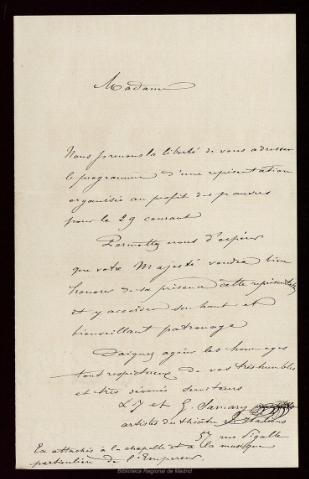 Madame
Nous prenons la liberté de vous adresser
le programme d'une représentation
organisée au profit des pauvres
pour le 29 courant
Permettez nous d'espérer
que votre Majesté voudra bien
honorer de sa présence cette représentation
et y accorder son haut et
bienveillant patronage
Daignez agréer les hommages
tout respectueux de vos très humbles
et très dévoués serviteurs
L J et G. Samary
artistes du théâtre
57 rue Pigalle
Ex attachés à la chapelle et à la musique
particulière de l'Empereur.
Biblioteca Regional de Madrid